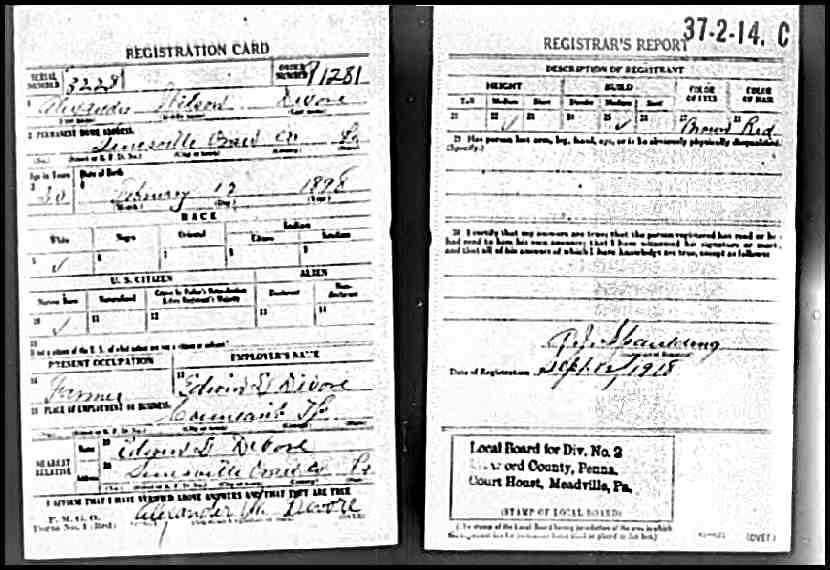 REGISTRATION CARD
SERIAL NUMBER 3228
ORDER NUMBER 1281
1 Alexander Wilson Devore
2 PERMANENT HOME ADDRESS
Linesville Craw Co Pa
Age in Years
Date of Birth
3 20
February 17 1898
(Month.) (Day.) (Year.)
RACE
White Negro Oriental Indian
Citizen
5 ✓ 6 7 8 9
U. S. CITIZEN ALIEN
Native Born Naturalized Citizen by Father's Naturalization Before Registrant's Majority Declarant Non-declarant
10 ✓ 11 12 13 14
15
If not a citizen of the U. S., of what nation are you a citizen or subject?
PRESENT OCCUPATION EMPLOYER'S NAME
16 Farmer
17 Edwin D Devore
18 PLACE OF EMPLOYMENT OR BUSINESS
Conneaut Tp
NEAREST RELATIVE
Name 19 Edwin D Devore
Address 20 Linesville Craw Co Pa
I AFFIRM THAT I HAVE VERIFIED ABOVE ANSWERS AND THAT THEY ARE TRUE
P. M. G. O.
Form No. 1 (Red)
Alexander W. Devore
37-2-14. C
REGISTRAR'S REPORT
DESCRIPTION OF REGISTRANT
HEIGHT BUILD COLOR OF EYES COLOR OF HAIR
Tall Medium Short Slender Medium Stout
21 22 ✓ 23 24 25 ✓ 26 27 Brown 28 Red
29 Has person lost arm, leg, hand, eye, or is he obviously physically disqualified?
(Specify.)
30 I certify that my answers are true; that the person registered has read or has
had read to him his own answers; that I have witnessed his signature or mark,
and that all of his answers of which I have knowledge are true, except as follows:
Spaulding
Date of Registration Sept. 12, 1918
Local Board for Div. No. 2
Crawford County, Penna.
Court House, Meadville, Pa.
(STAMP OF LOCAL BOARD)
(The stamp of the Local Board having jurisdiction of the area in which
the registrant has his permanent home shall be placed in this box.)
(OVER)